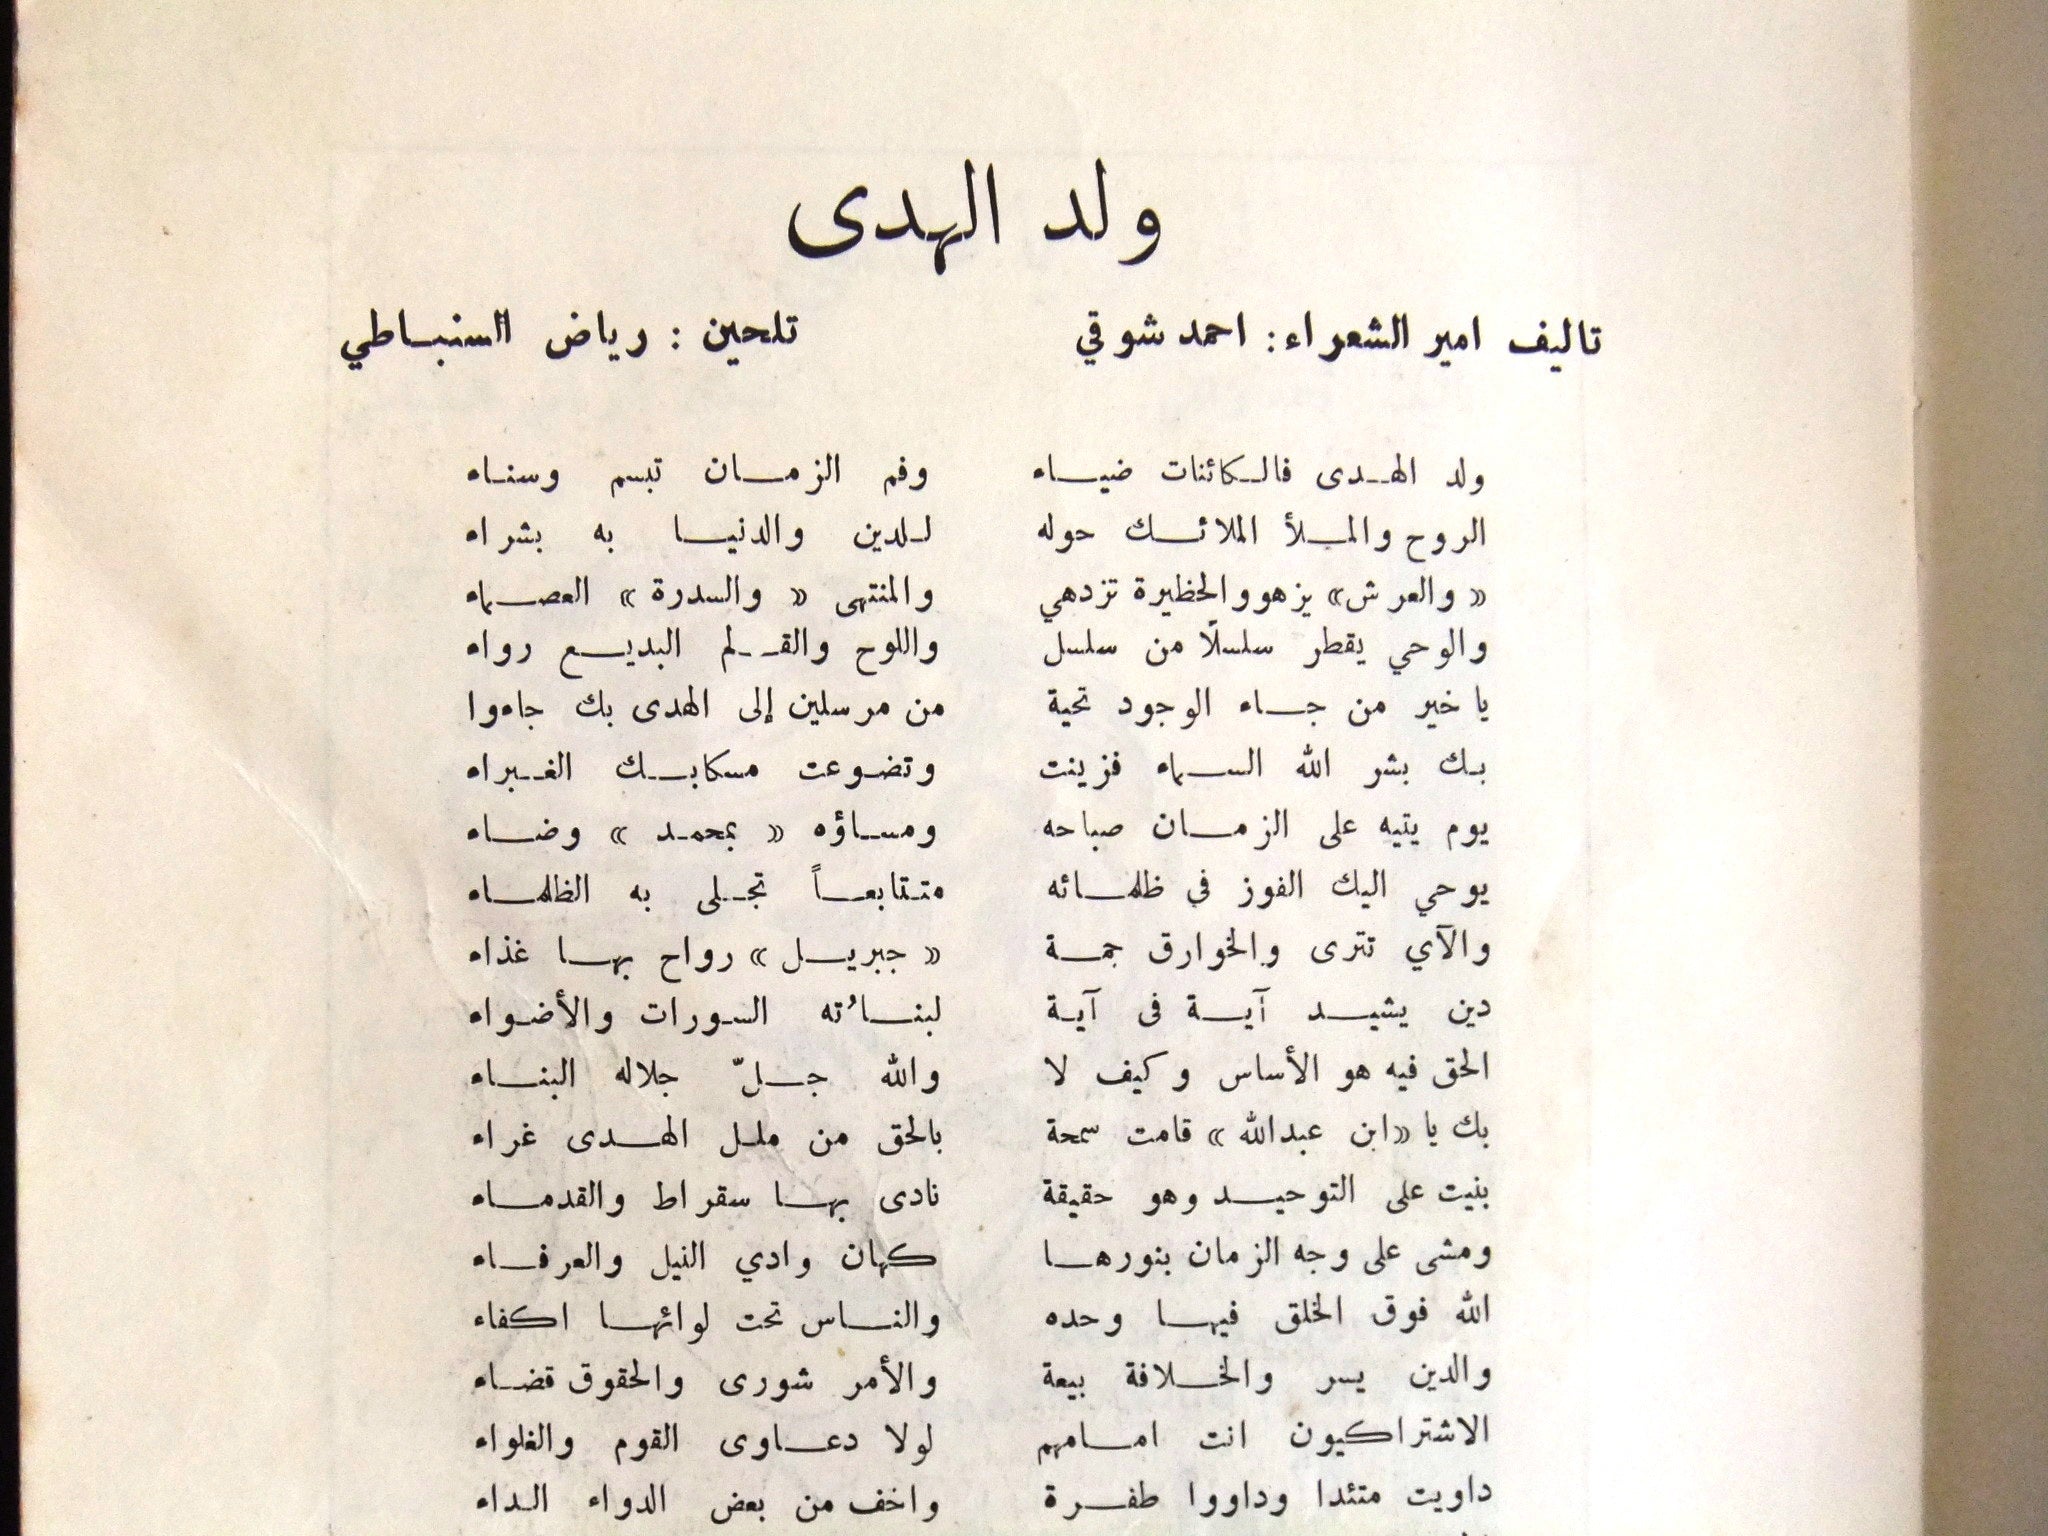 ولد الهدى
تاليف امير الشعراء: احمد شوقي تلحين: رياض السنباطي
ولد الهدى فالكائنات ضياء وفم الزمان تبسم وسناء
الروح والملأ الملائك حوله للدين والدنيا به بشراء
«والعرش» يزهو والحظيرة تزدهي والمنتهى «والسدرة» العصماء
والوحي يقطر سلسلًا من سلسل واللوح والقلم البديع رواء
يا خير من جاء الوجود تحية من مرسلين إلى الهدى بك جاءوا
بك بشر الله السماء فزينت وتضوعت مسكا بك الغبراء
يوم يتيه على الزمان صباحه ومساؤه «بمحمد» وضاء
يوحي اليك الفوز في ظلمائه متتابعاً تجلى به الظلماء
والآي تترى والخوارق جمة «جبريل» رواح بها غذاء
دين يشيد آية فى آية لبنائته السورات والأضواء
الحق فيه هو الأساس وكيف لا والله جلّ جلاله البناء
بك يا «ابن عبدالله» قامت سمحة بالحق من ملل الهدى غراء
بنيت على التوحيد وهو حقيقة نادى بها سقراط والقدماء
ومشى على وجه الزمان بنورها كهان وادي النيل والعرفاء
الله فوق الخلق فيها وحده والناس تحت لوائها اكفاء
والدين يسر والخلافة بيعة والأمر شورى والحقوق قضاء
الاشتراكيون انت امامهم لولا دعاوى القوم والغلواء
داويت متئدا وداووا طفرة واخف من بعض الدواء الداء